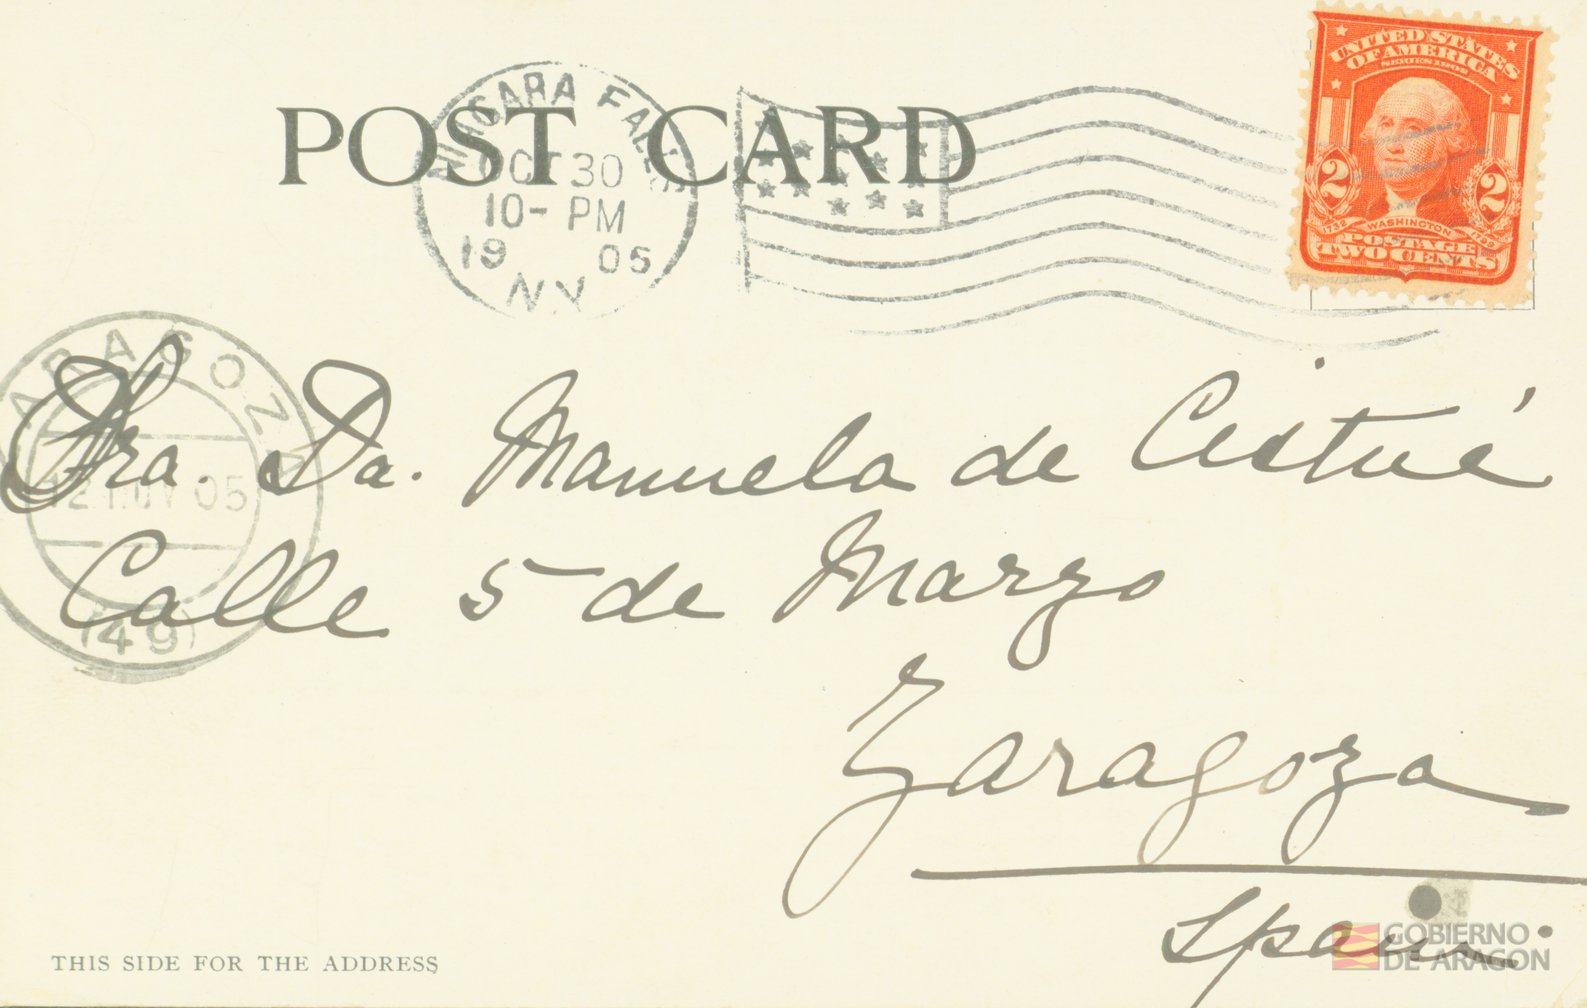 POST CARD
NIAGARA FALLS
OCT 30
10- PM
19 05
N.Y.
UNITED STATES
OF AMERICA
SERIES 1902
2 2
1732 WASHINGTON 1799
POSTAGE
TWO CENTS
ZARAGOZA
12.NOV.05
(49)
Sra. Da. Manuela de Cistué
Calle 5 de Marzo
Zaragoza
Spain.
THIS SIDE FOR THE ADDRESS
GOBIERNO
DE ARAGON